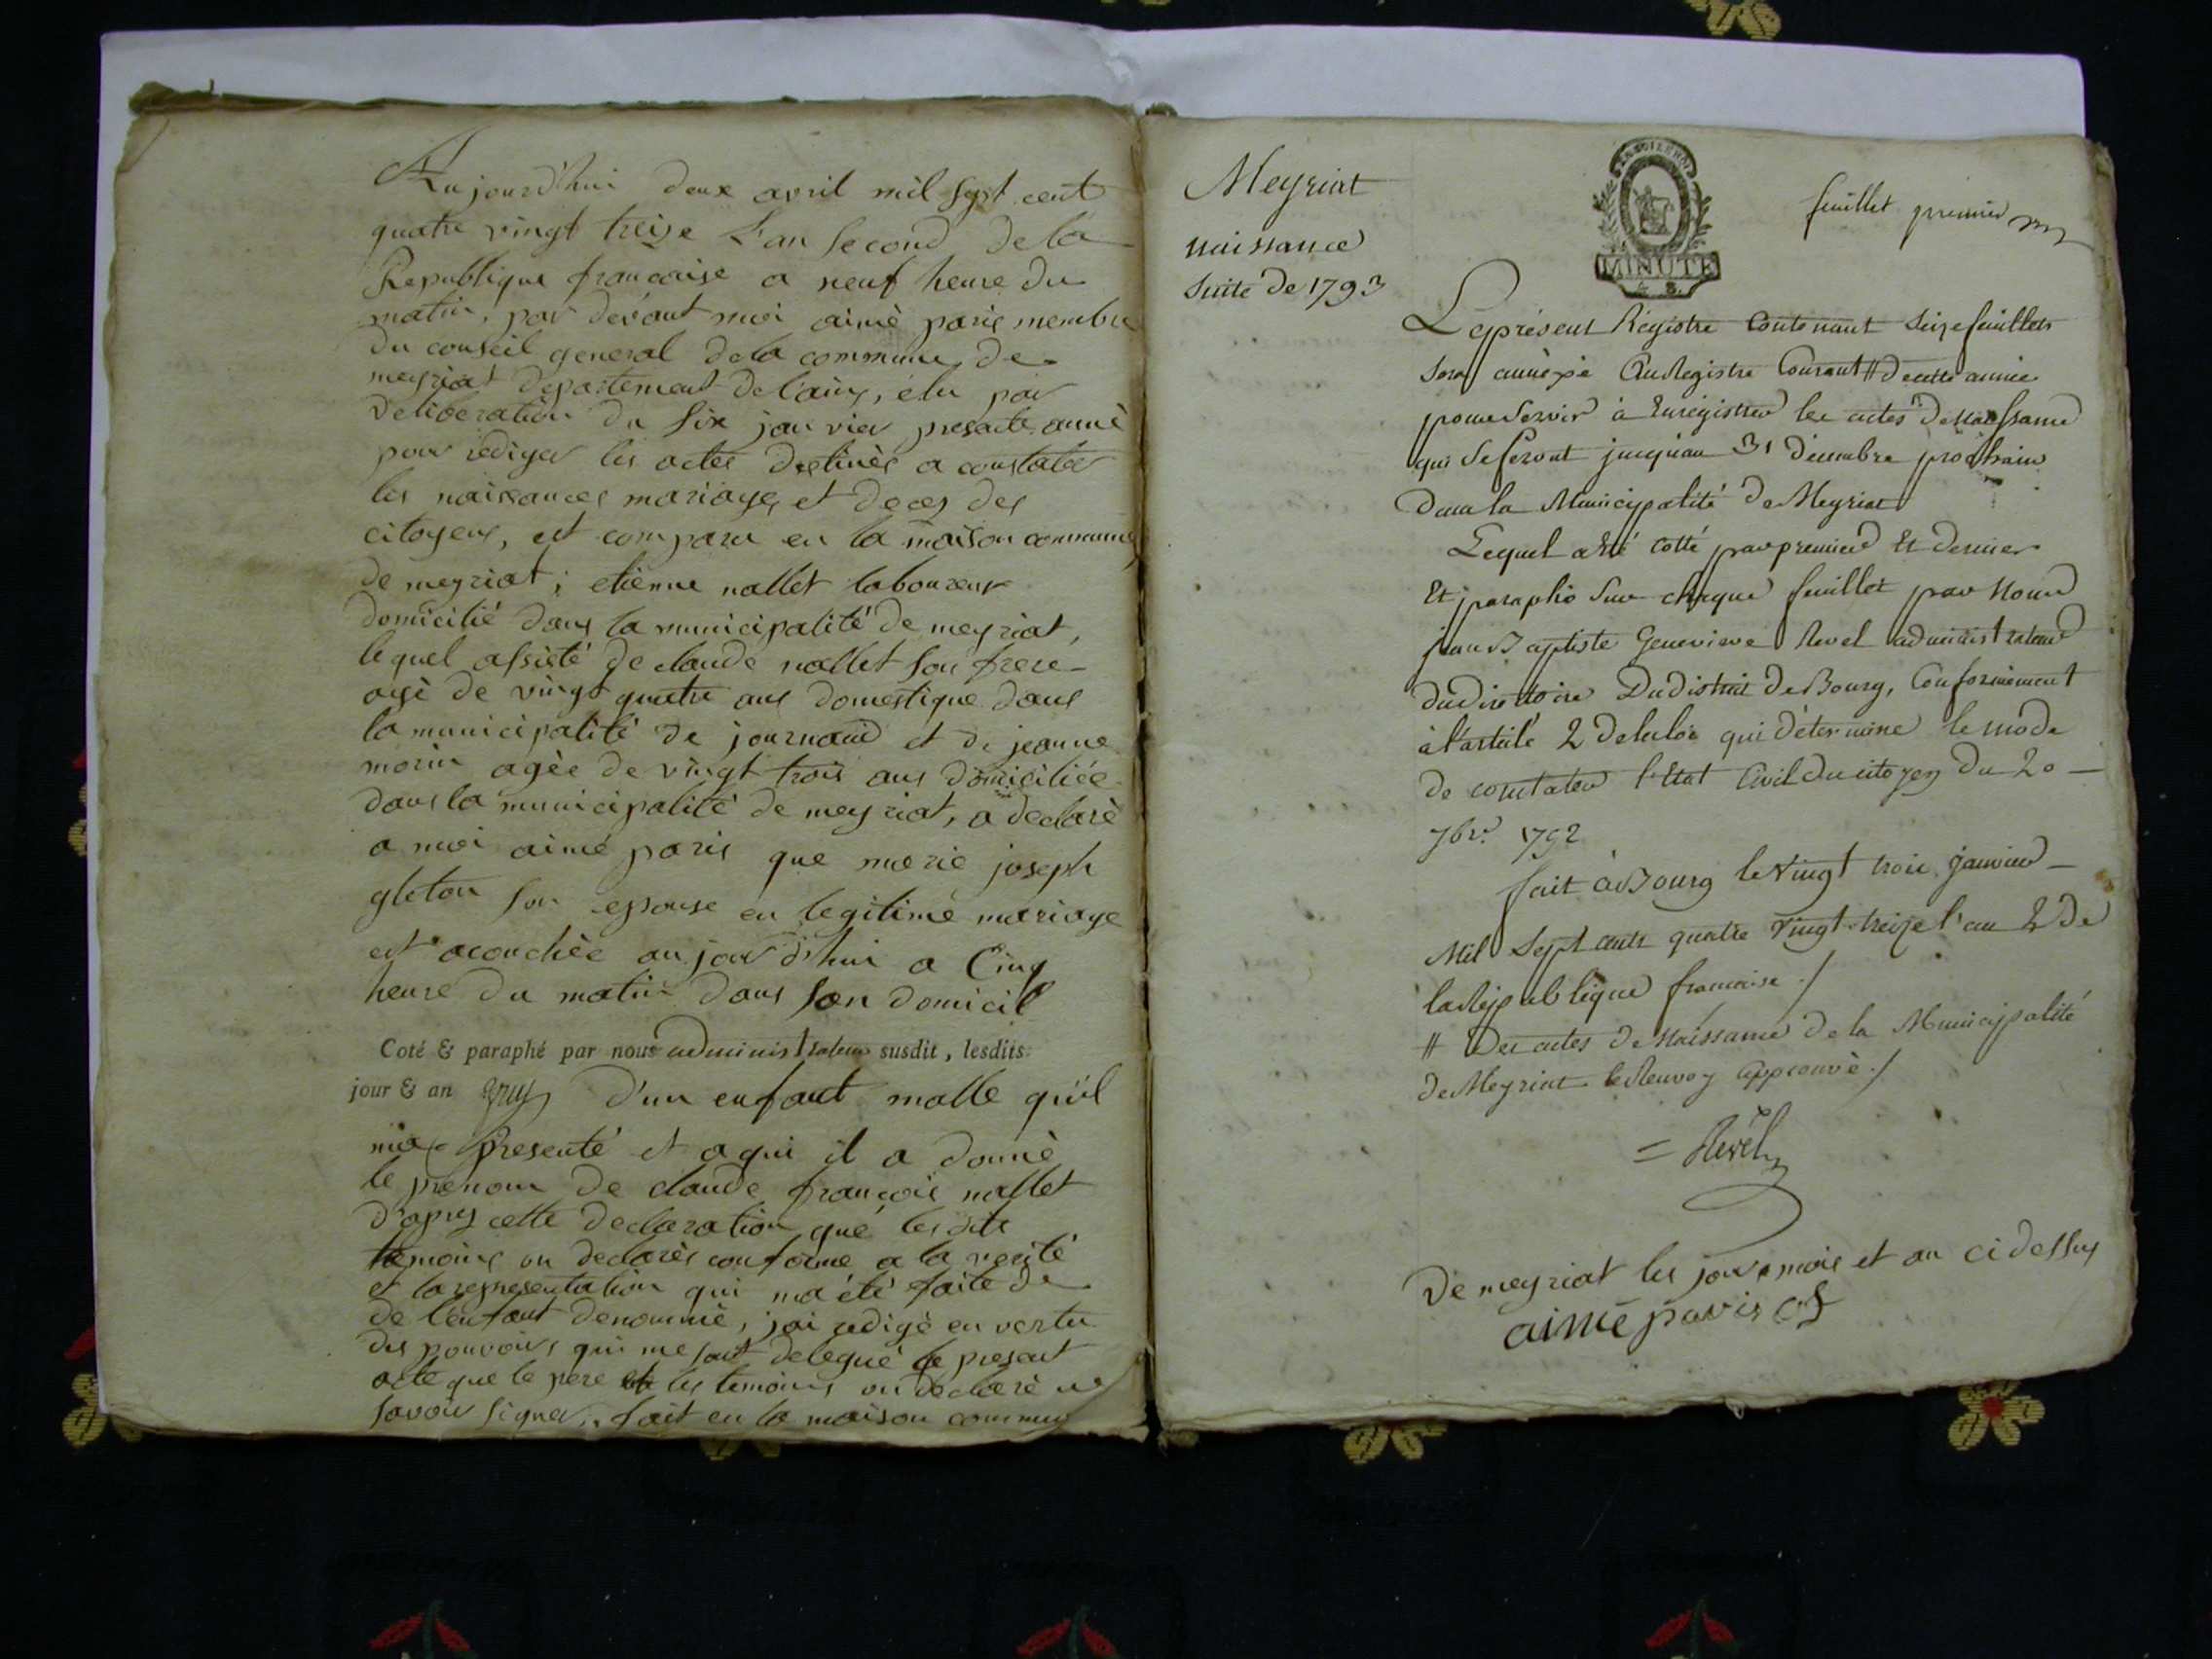 Aujourd'hui deux avril mil sept cent
quatre vingt treize L'an second de la
Republique francaise a neuf heure du
matin, par dévant moi aimé paris membre
du conseil general de la commune de
meyriat departement de l'ain, élu par
deliberation du six janvier presente anneè
pour rediger les actes destinés a constater
les naissances mariages et deces des
citoyens, est comparu en la maison commune
de meyriat; etienne nallet laboureur
domicilié dans la municipalité de meyriat,
lequel assisté de claude nallet son frere
agé de vingt quatre ans domestique dans
la municipalité de journand et de jeanne
morin agèe de vingt trois ans domiciliée
dans la municipalité de meyriat, a declaré
a moi aimé paris que marie joseph
gleton son epouse en legitime mariage
est acouchée aujourd'hui a Cinq
heure du matin dans son domicil
Coté & paraphé par nous administrateur susdit, lesdits
jour & an d'un enfant malle qu'il
m'a presenté et a qui il a donné
le prenom de claude françois nallet
d'apres cette declaration que les dits
temoins on declarés conforme a la verité
et la representation qui m'a été faite de
de l'enfant denommé, j'ai redigé en vertu
des pouvoirs qui me sont delegué le present
acte que le pere et les temoins on declaré ne
savoir signer, fait en la maison commune
Meyriat
naissance
suite de 1793
LA LOI LE ROI
MINUTE
feuillet premier
Le présent Régistre Contenant Seize feuillets
sera annèxé Au Registre Courant # de cette année
pour servir à Enregistrer les actes de Naissance
qui se feront jusqu'au 31 décembre prochain
dans la Municipalité de Meyriat
Lequel a Eté cotté par premier Et dernier
Et paraphé Sur chaque feuillet par Nous
jean Baptiste Genevieve Revel administrateur
du directoire Du district de Bourg, Conformément
à l'article 2 de la loi qui détermine le mode
de constater l'Etat Civil du citoyen du 20
7bre. 1792
fait à Bourg le Vingt trois janvier
Mil Sept cents quatre Vingt treize l'an 2 de
la République francaise ./
# Des actes de Naissance de la Municipalité
de Meyriat le Renvoy approuvé ./
= Revel
De meyriat les jour mois et an ci dessus
aimé paris of